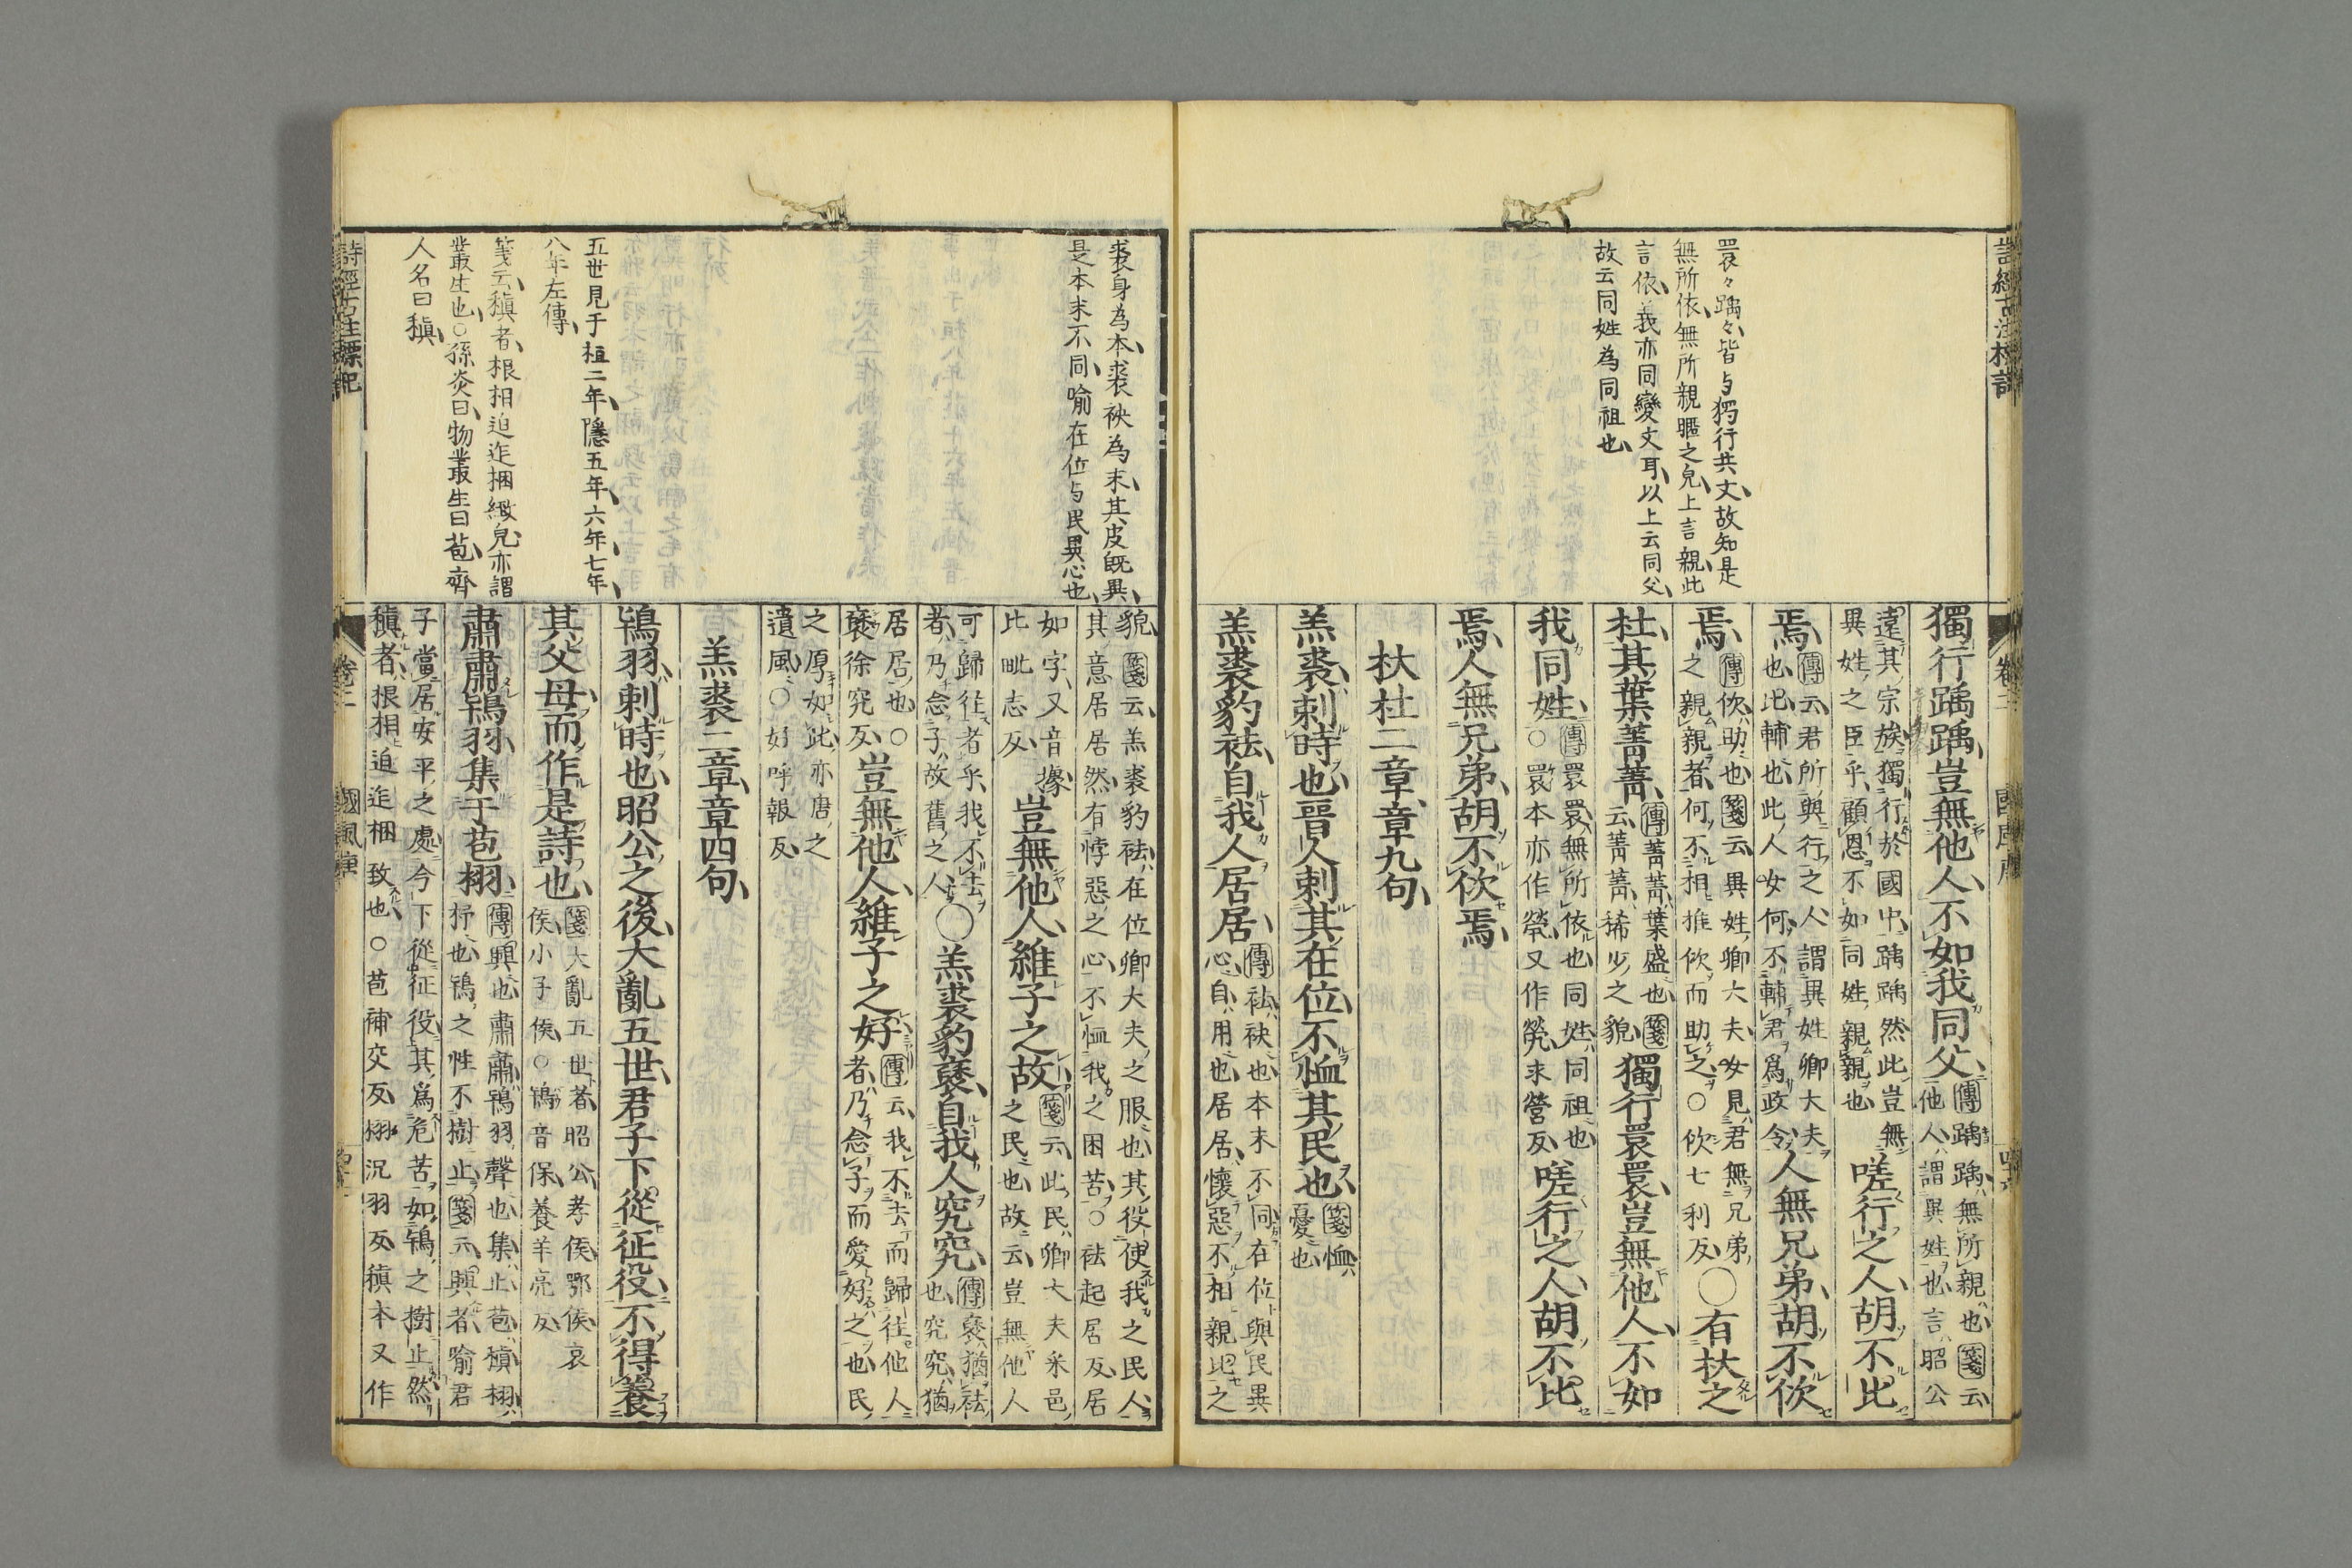 詩經古注標記
睘々踽々皆与獨行共文故知是
無所依無所親暱之皃上言親此
言依義亦同變文耳以上云同父
故云同姓為同祖也
卷二
獨行踽踽豈無他人不如我同父
傳踽踽無所親也箋云
他人謂異姓也言昭公
遠其宗族獨行於國中踽踽然此豈無
異姓之臣乎顧恩不如同姓親親也
嗟行之人胡不比
焉
傳云君所與行之人謂異姓卿大夫
也比輔也此人女何不輔君爲政令
人無兄弟胡不佽
焉
傳佽助也箋云異姓卿大夫女見君無兄弟
之親親者何不相推佽而助之○佽七利反
○有杕之
杜其葉菁菁
傳菁菁葉盛也箋
云菁菁稀少之貌
獨行睘睘豈無他人不如
我同姓
傳睘睘無所依也同姓同祖也
○睘本亦作煢又作㷀求營反
嗟行之人胡不比
焉人無兄弟胡不佽焉
杕杜二章章九句
羔裘刺時也晉人刺其在位不恤其民也
箋恤
憂也
羔裘豹袪自我人居居
傳袪袂也本末不同在位與民異
心自用也居居懷惡不相親比之
裘身為本裘袂為末其皮既異
是本末不同喻在位与民異心也
五世見于桓二年隱五年六年七年
八年左傳
箋云稹者根相迫迮梱緻皃亦謂
叢生也○孫炎曰物叢生曰苞齊
人名曰稹
貌箋云羔裘豹袪在位卿大夫之服也其役使我之民人
其意居居然有悖惡之心不恤我之困苦○袪起居反居
如字又音據
比毗志反
豈無他人維子之故
箋云此民卿大夫采邑
之民也故云豈無他人
可歸往者乎我不去
者乃念子故舊之人
○羔裘豹褎自我人究究
傳褎猶袪
也究究猶
居居也○
褎徐究反
豈無他人維子之好
傳云我不去而歸往他人
者乃念子而愛好之也民
之厚如此亦唐之
遺風○好呼報反
羔裘二章章四句
鴇羽刺時也昭公之後大亂五世君子下從征役不得養
其父母而作是詩也
箋大亂五世者昭公孝侯鄂侯哀
侯小子侯○鴇音保養羊亮反
肅肅鴇羽集于苞栩
傳興也肅肅鴇羽聲也集止苞稹栩
杼也鴇之性不樹止箋云興者喻君
子當居安平之處今下從征役其爲危苦如鴇之樹止然
稹者根相迫迮梱致也○苞補交反栩況羽反稹本又作
詩經古注標記
卷二
國風唐